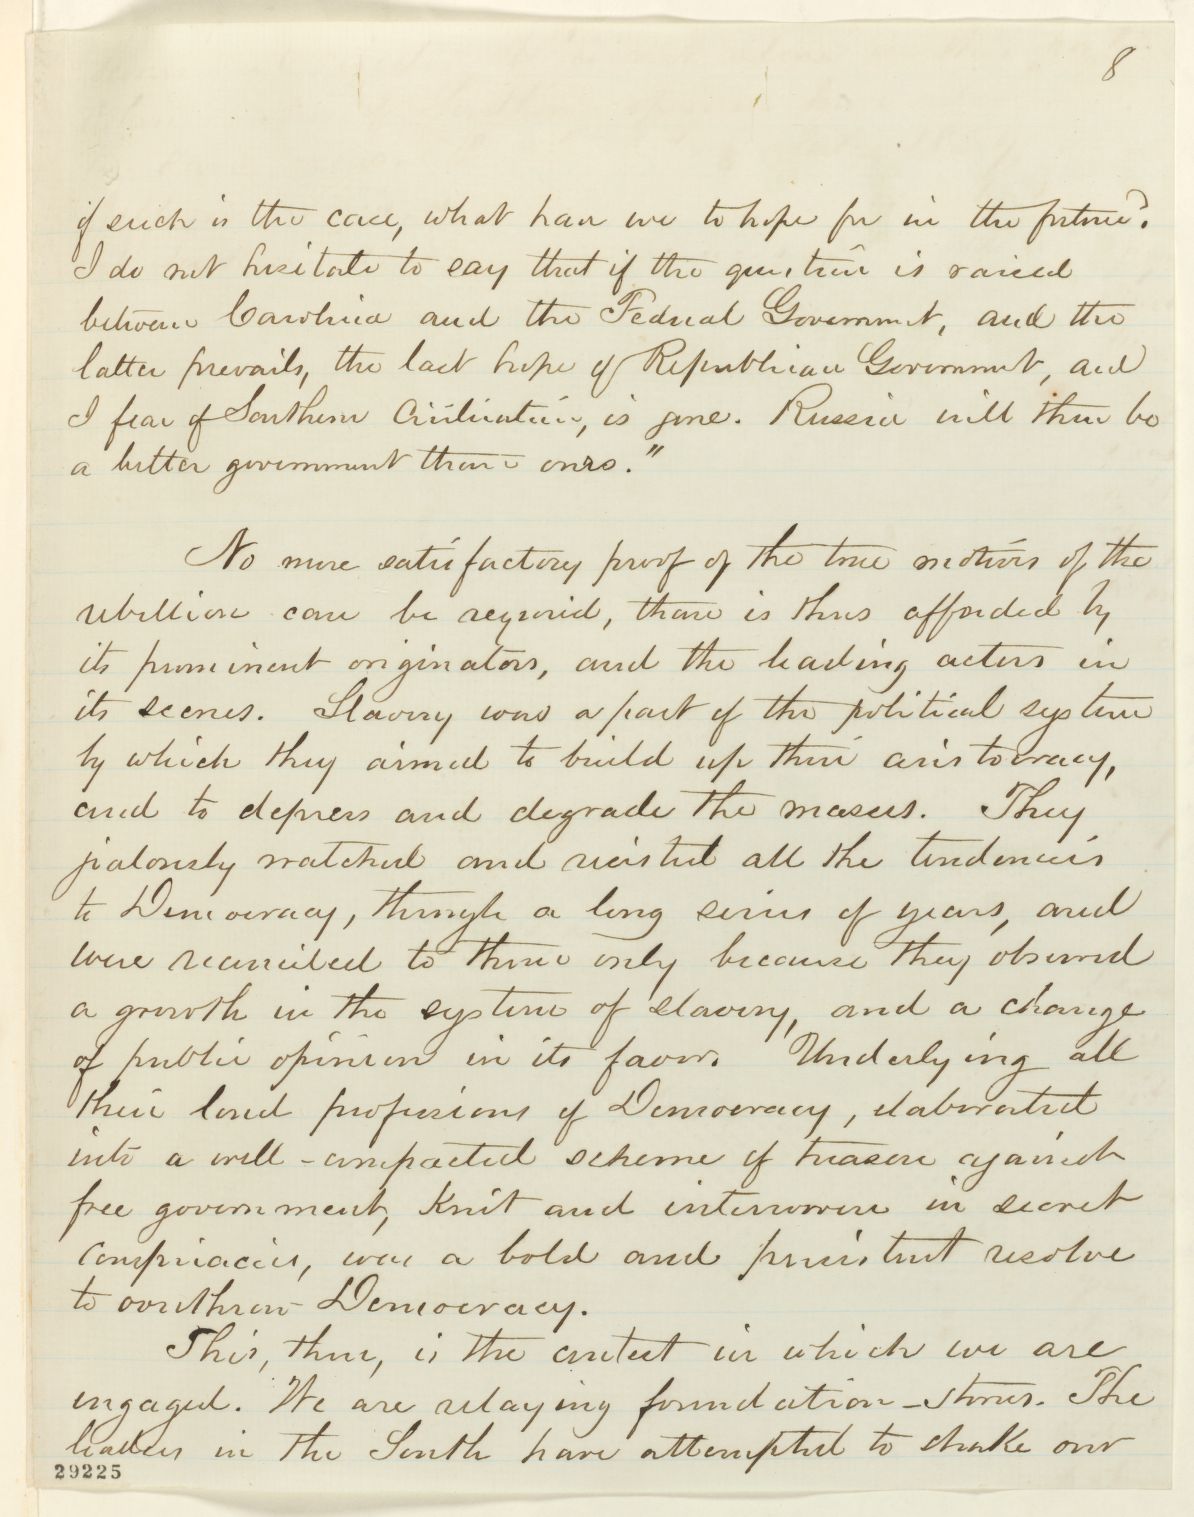 8
if such is the case, what have we to hope for in the future?
I do not hesitate to say that if the question is raised
between Carolina and the Federal Government, and the
latter prevails, the last hope of Republican Government, and
I fear of Southern Civilization, is gone. Russia will then be
a better government than ours."
No more satisfactory proof of the true motives of the
rebellion can be required, than is thus afforded by
its prominent originators, and the leading actors in
its scenes. Slavery was a part of the political system
by which they aimed to build up their aristocracy,
and to depress and degrade the masses. They
jealously watched and resisted all the tendencies
to Democracy, through a long series of years, and
were reconciled to them only because they observed
a growth in the system of slavery, and a change
of public opinion in its favor. Underlying all
their loud professions of Democracy, elaborated
into a well-compacted scheme of treason against
free government, knit and interwoven in secret
conspiracies, was a bold and persistent resolve
to overthrow Democracy.
This, then, is the contest in which we are
engaged. We are relaying foundation-stones. The
leaders in the South have attempted to shake our
29225